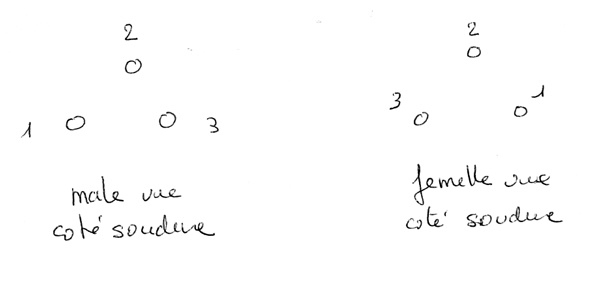 2
1
3
male vue
coté soudure
2
3
1
femelle vue
coté soudure